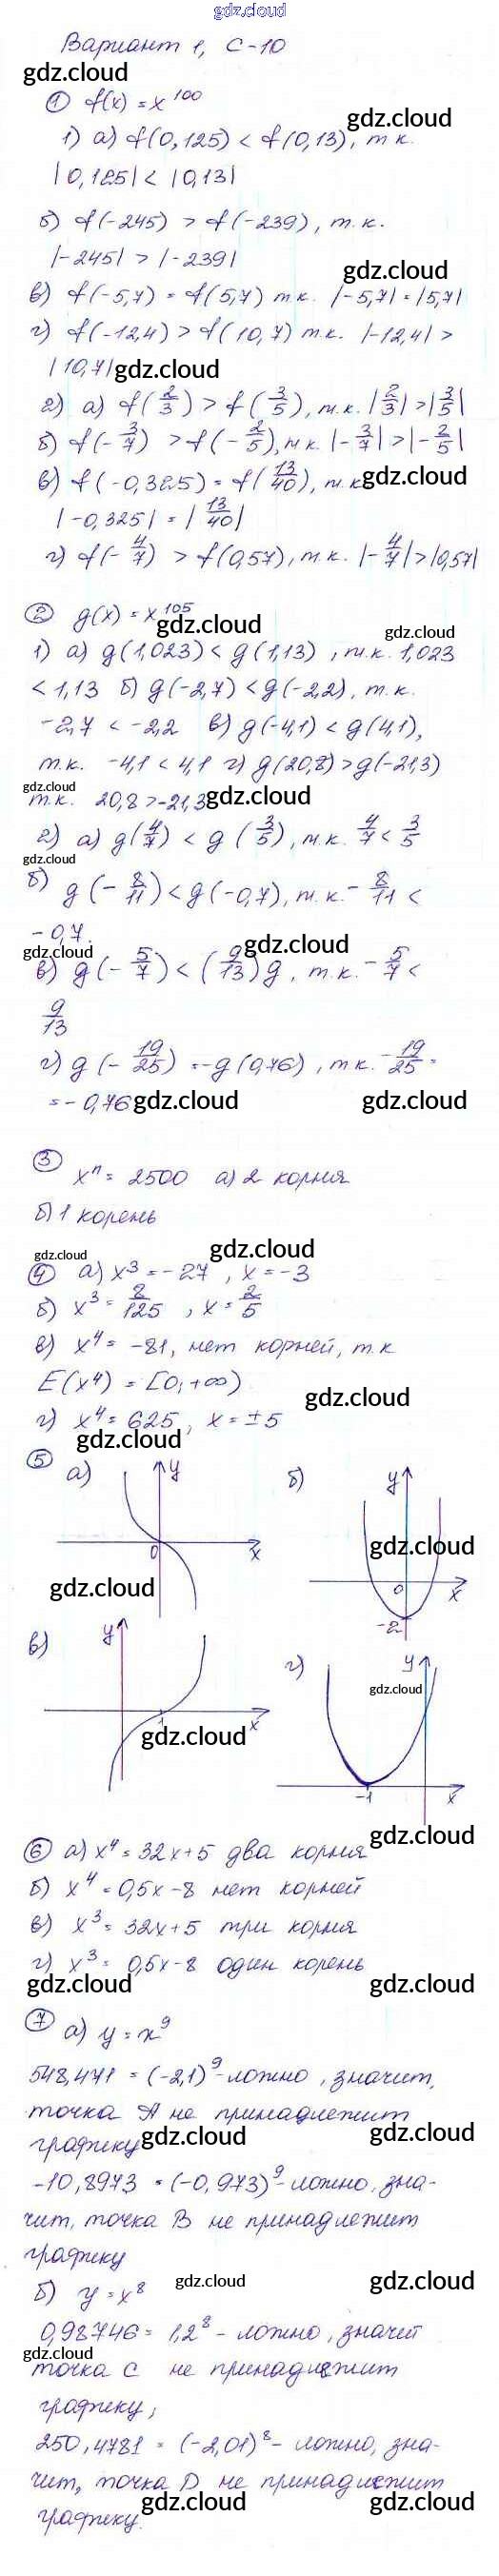 gdz.cloud
Вариант 1, С-10
gdz.cloud
① f(x) = x^100
gdz.cloud
1) а) f(0,125) < f(0,13), т.к.
|0,125| < |0,13|
б) f(-245) > f(-239), т.к.
|-245| > |-239|
gdz.cloud
в) f(-5,7) = f(5,7) т.к. |-5,7| = |5,7|
г) f(-12,4) > f(10,7) т.к. |-12,4| >
|10,7| gdz.cloud
2) а) f(2/3) > f(3/5), т.к. |2/3| > |3/5|
б) f(-3/7) > f(-2/5), т.к. |-3/7| > |-2/5|
в) f(-0,325) = f(13/40), т.к. gdz.cloud
|-0,325| = |13/40|
г) f(-4/7) > f(0,57), т.к. |-4/7| > |0,57|
② g(x) = x^105
gdz.cloud gdz.cloud
1) а) g(1,023) < g(1,13), т.к. 1,023
< 1,13 б) g(-2,7) < g(-2,2), т.к.
-2,7 < -2,2 в) g(-4,1) < g(4,1),
т.к. -4,1 < 4,1 г) g(20,8) > g(-21,3)
gdz.cloud
т.к. 20,8 > -21,3 gdz.cloud
2) а) g(4/7) < g(3/5), т.к. 4/7 < 3/5
gdz.cloud
б) g(-8/11) < g(-0,7), т.к. -8/11 <
-0,7.
gdz.cloud gdz.cloud
в) g(-5/7) < (9/13)g, т.к. -5/7 <
9/13
г) g(-19/25) = -g(0,76), т.к. -19/25 =
= -0,76 gdz.cloud gdz.cloud
③ x^n = 2500 а) 2 корня
б) 1 корень
gdz.cloud gdz.cloud
④ а) x^3 = -27, x = -3
б) x^3 = 8/125, x = 2/5
в) x^4 = -81, нет корней, т.к
E(x^4) = [0; +∞)
gdz.cloud
г) x^4 = 625, x = ±5
gdz.cloud
⑤ а) y 0 x
gdz.cloud
б) y 0 x -2
gdz.cloud
в) y 1 x
gdz.cloud
г) y -1 x
gdz.cloud
gdz.cloud
⑥ а) x^4 = 32x+5 два корня
б) x^4 = 0,5x-8 нет корней
в) x^3 = 32x+5 три корня
г) x^3 = 0,5x-8 один корень
gdz.cloud gdz.cloud
⑦ а) y = x^9
548,471 = (-2,1)^9 - ложно, значит,
точка А не принадлежит
графику gdz.cloud gdz.cloud
-10,8973 = (-0,973)^9 - ложно, зна-
чит, точка В не принадлежит
графику
gdz.cloud gdz.cloud
б) y = x^8
0,98746 = 1,2^8 - ложно, значит
gdz.cloud
точка С не принадлежит
графику,
250,4781 = (-2,01)^8 - ложно, зна-
чит, точка D не принадлежит
графику. gdz.cloud gdz.cloud